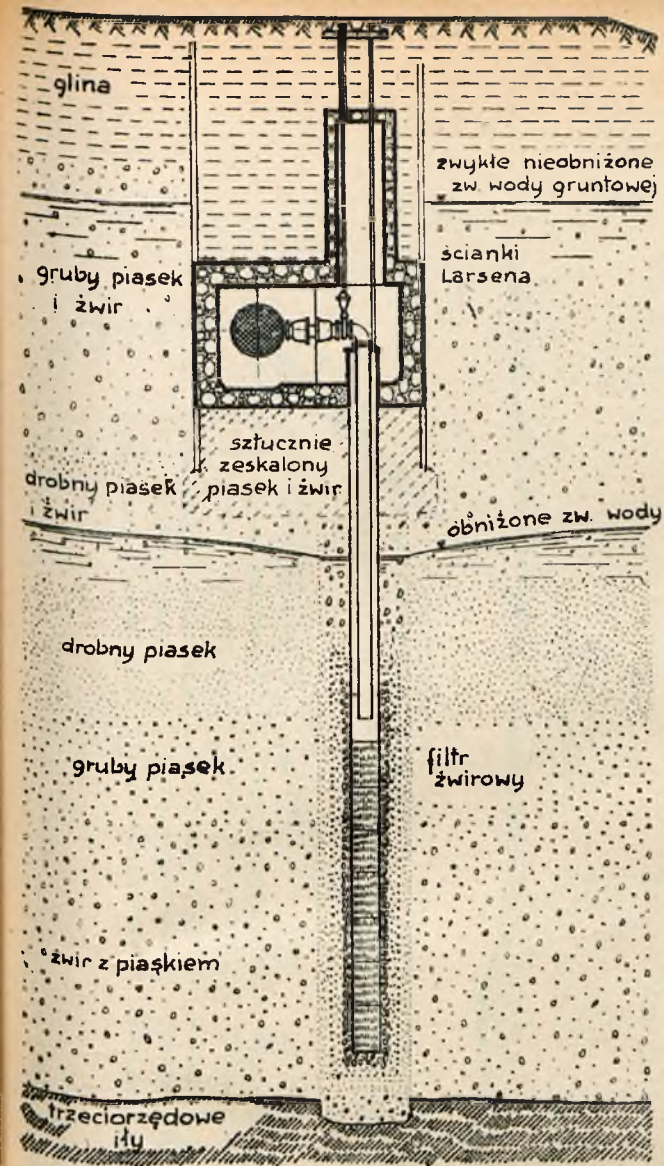 glina
zwykłe nieobniżone
zw. wody gruntowej
ścianki
Larsena
gruby piasek
i żwir
sztucznie
zeskalony
piasek i żwir
drobny piasek
i żwir
obniżone zw. wody
drobny piasek
gruby piasek
filtr
żwirowy
żwir z piaskiem
trzeciorzędowe
iły